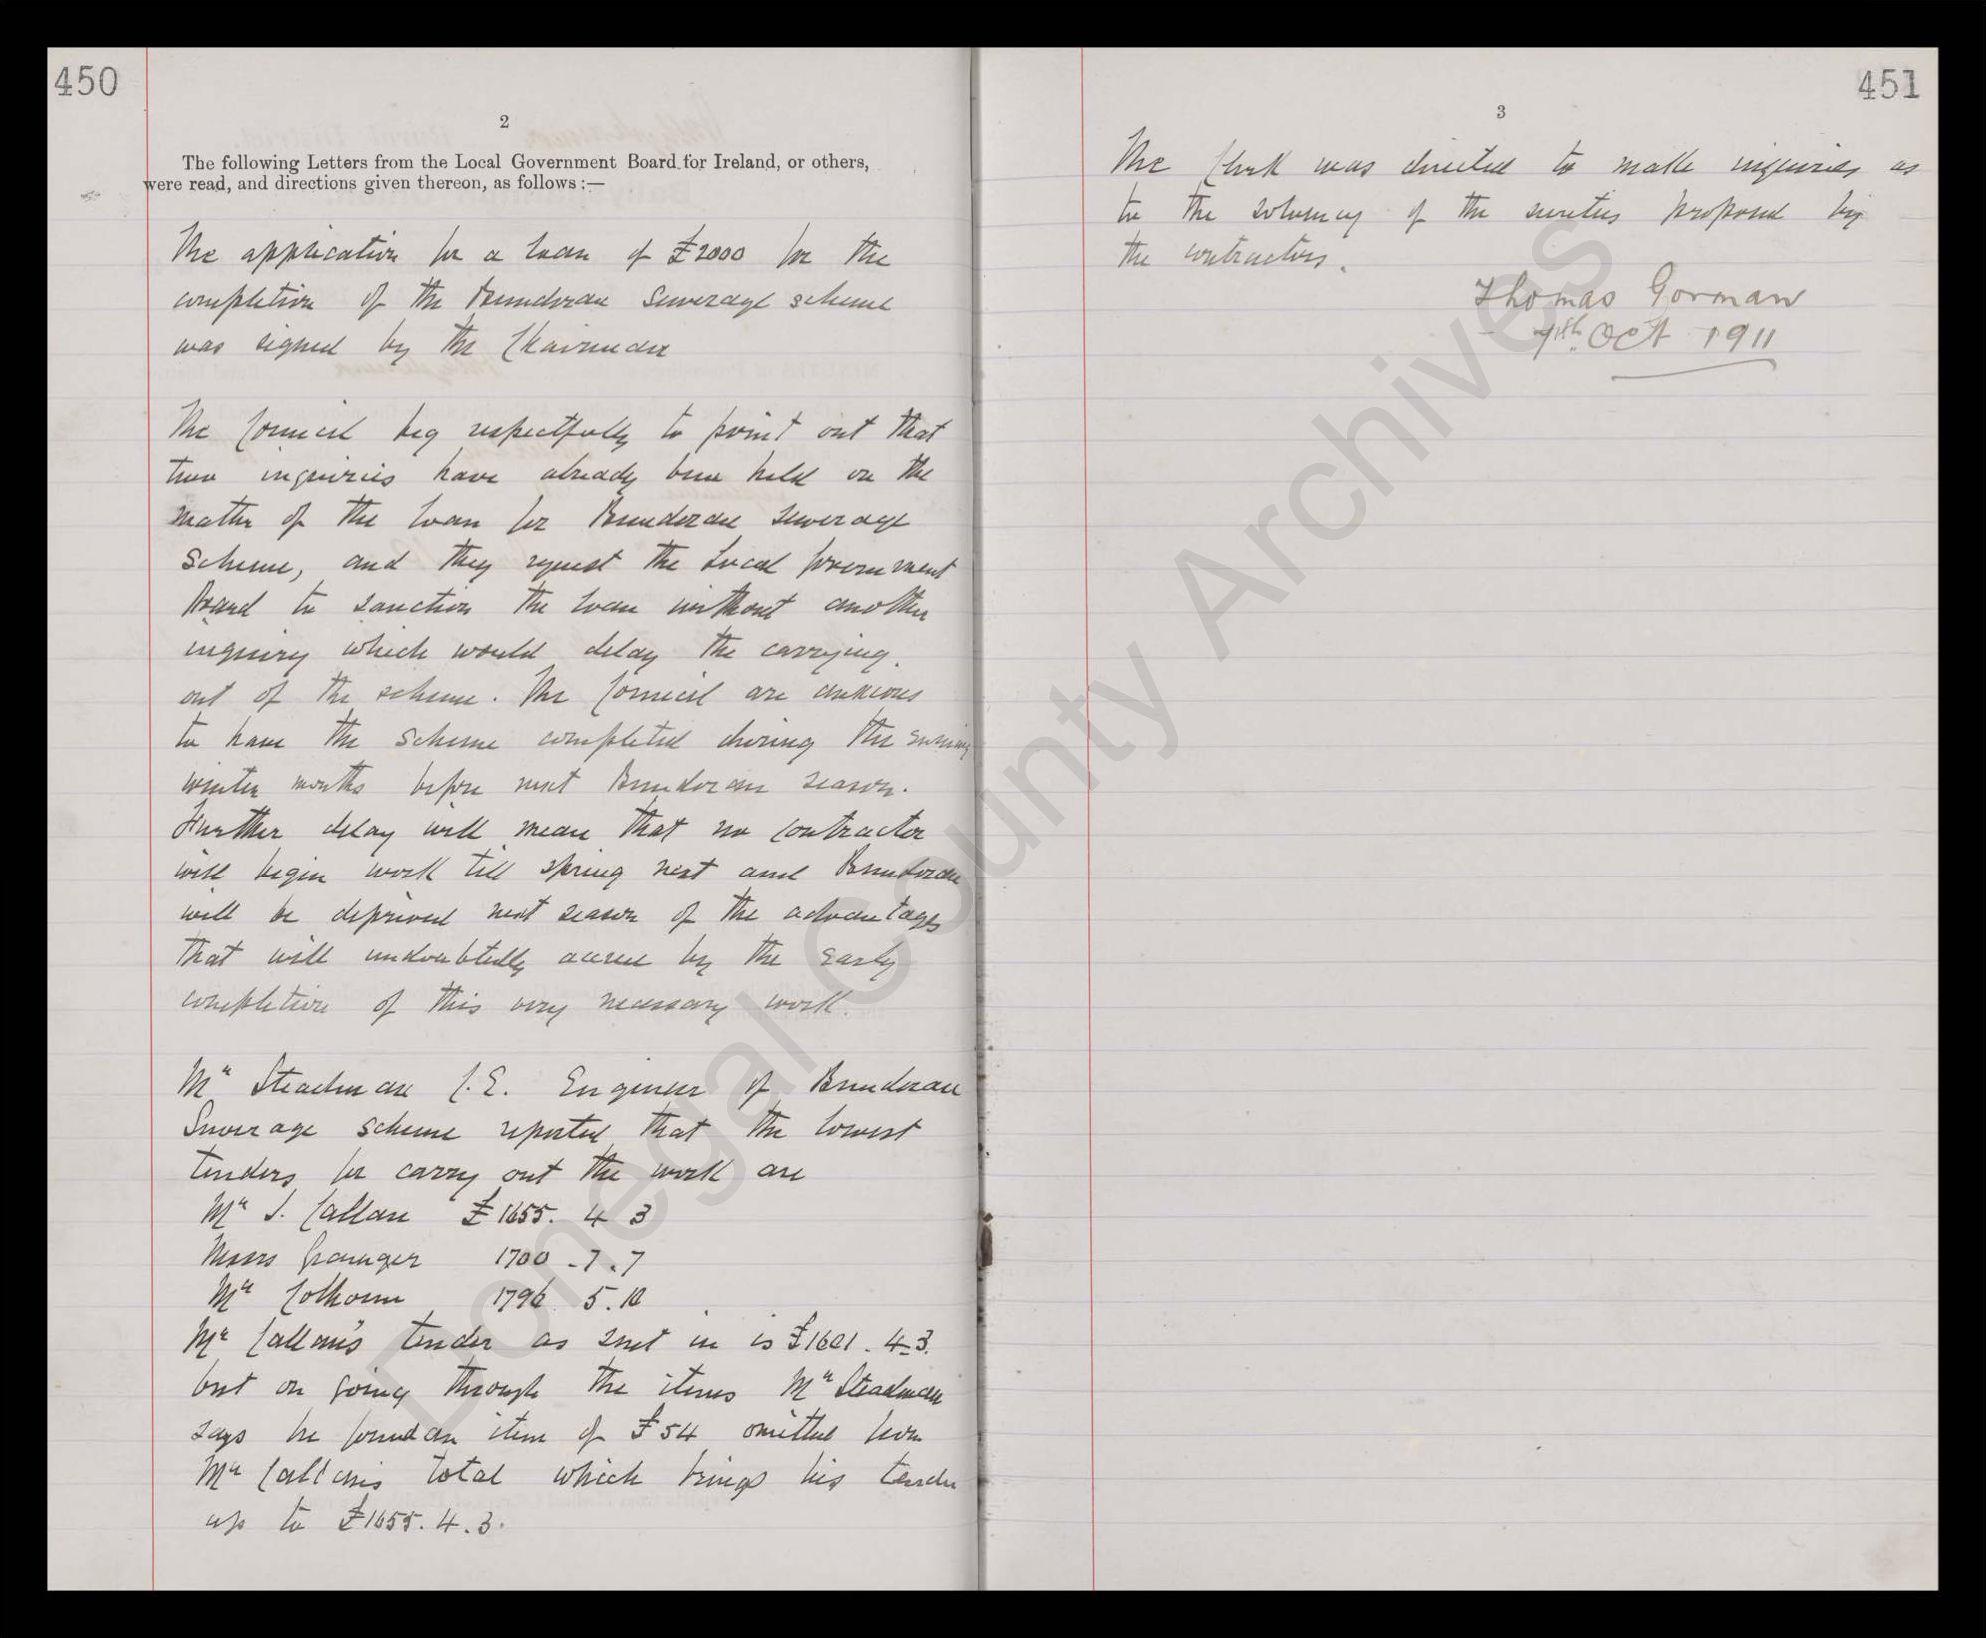 450
2
The following Letters from the Local Government Board for Ireland, or others,
were read, and directions given thereon, as follows :—
The application for a loan of £2000 for the
completion of the Bundoran Sewerage scheme
was signed by the Chairman
The Council beg respectfully to point out that
two inquiries have already been held on the
matter of the loan for Bundoran Sewerage
Scheme, and they request the Local Government
Board to sanction the loan without another
inquiry which would delay the carrying
out of the scheme. The Council are anxious
to have the scheme completed during the
winter months before next Bundoran season.
Further delay will mean that no contractor
will begin work till spring next and Bundoran
will be deprived next season of the advantages
that will undoubtedly accrue by the early
completion of this very necessary work.
Mr Steadman C.E. Engineer of Bundoran
Sewerage scheme reported that the lowest
tenders for carry out the work are
Mr J. Callan £1655. 4 3
Messrs Grainger 1700 - 7 . 7
Mr Colhoun 1796 5. 10
Mr Callan's tender as sent in is £1601 . 4-3.
but on going through the items Mr Steadman
says he found an item of £54 omitted from
Mr Callan's total which brings his tender
up to £1655. 4. 3.
451
3
The Clerk was directed to make inquiries as
to the solvency of the sureties proposed by
the contractors.
Thomas Gorman
7th Oct 1911
Donegal County Archives